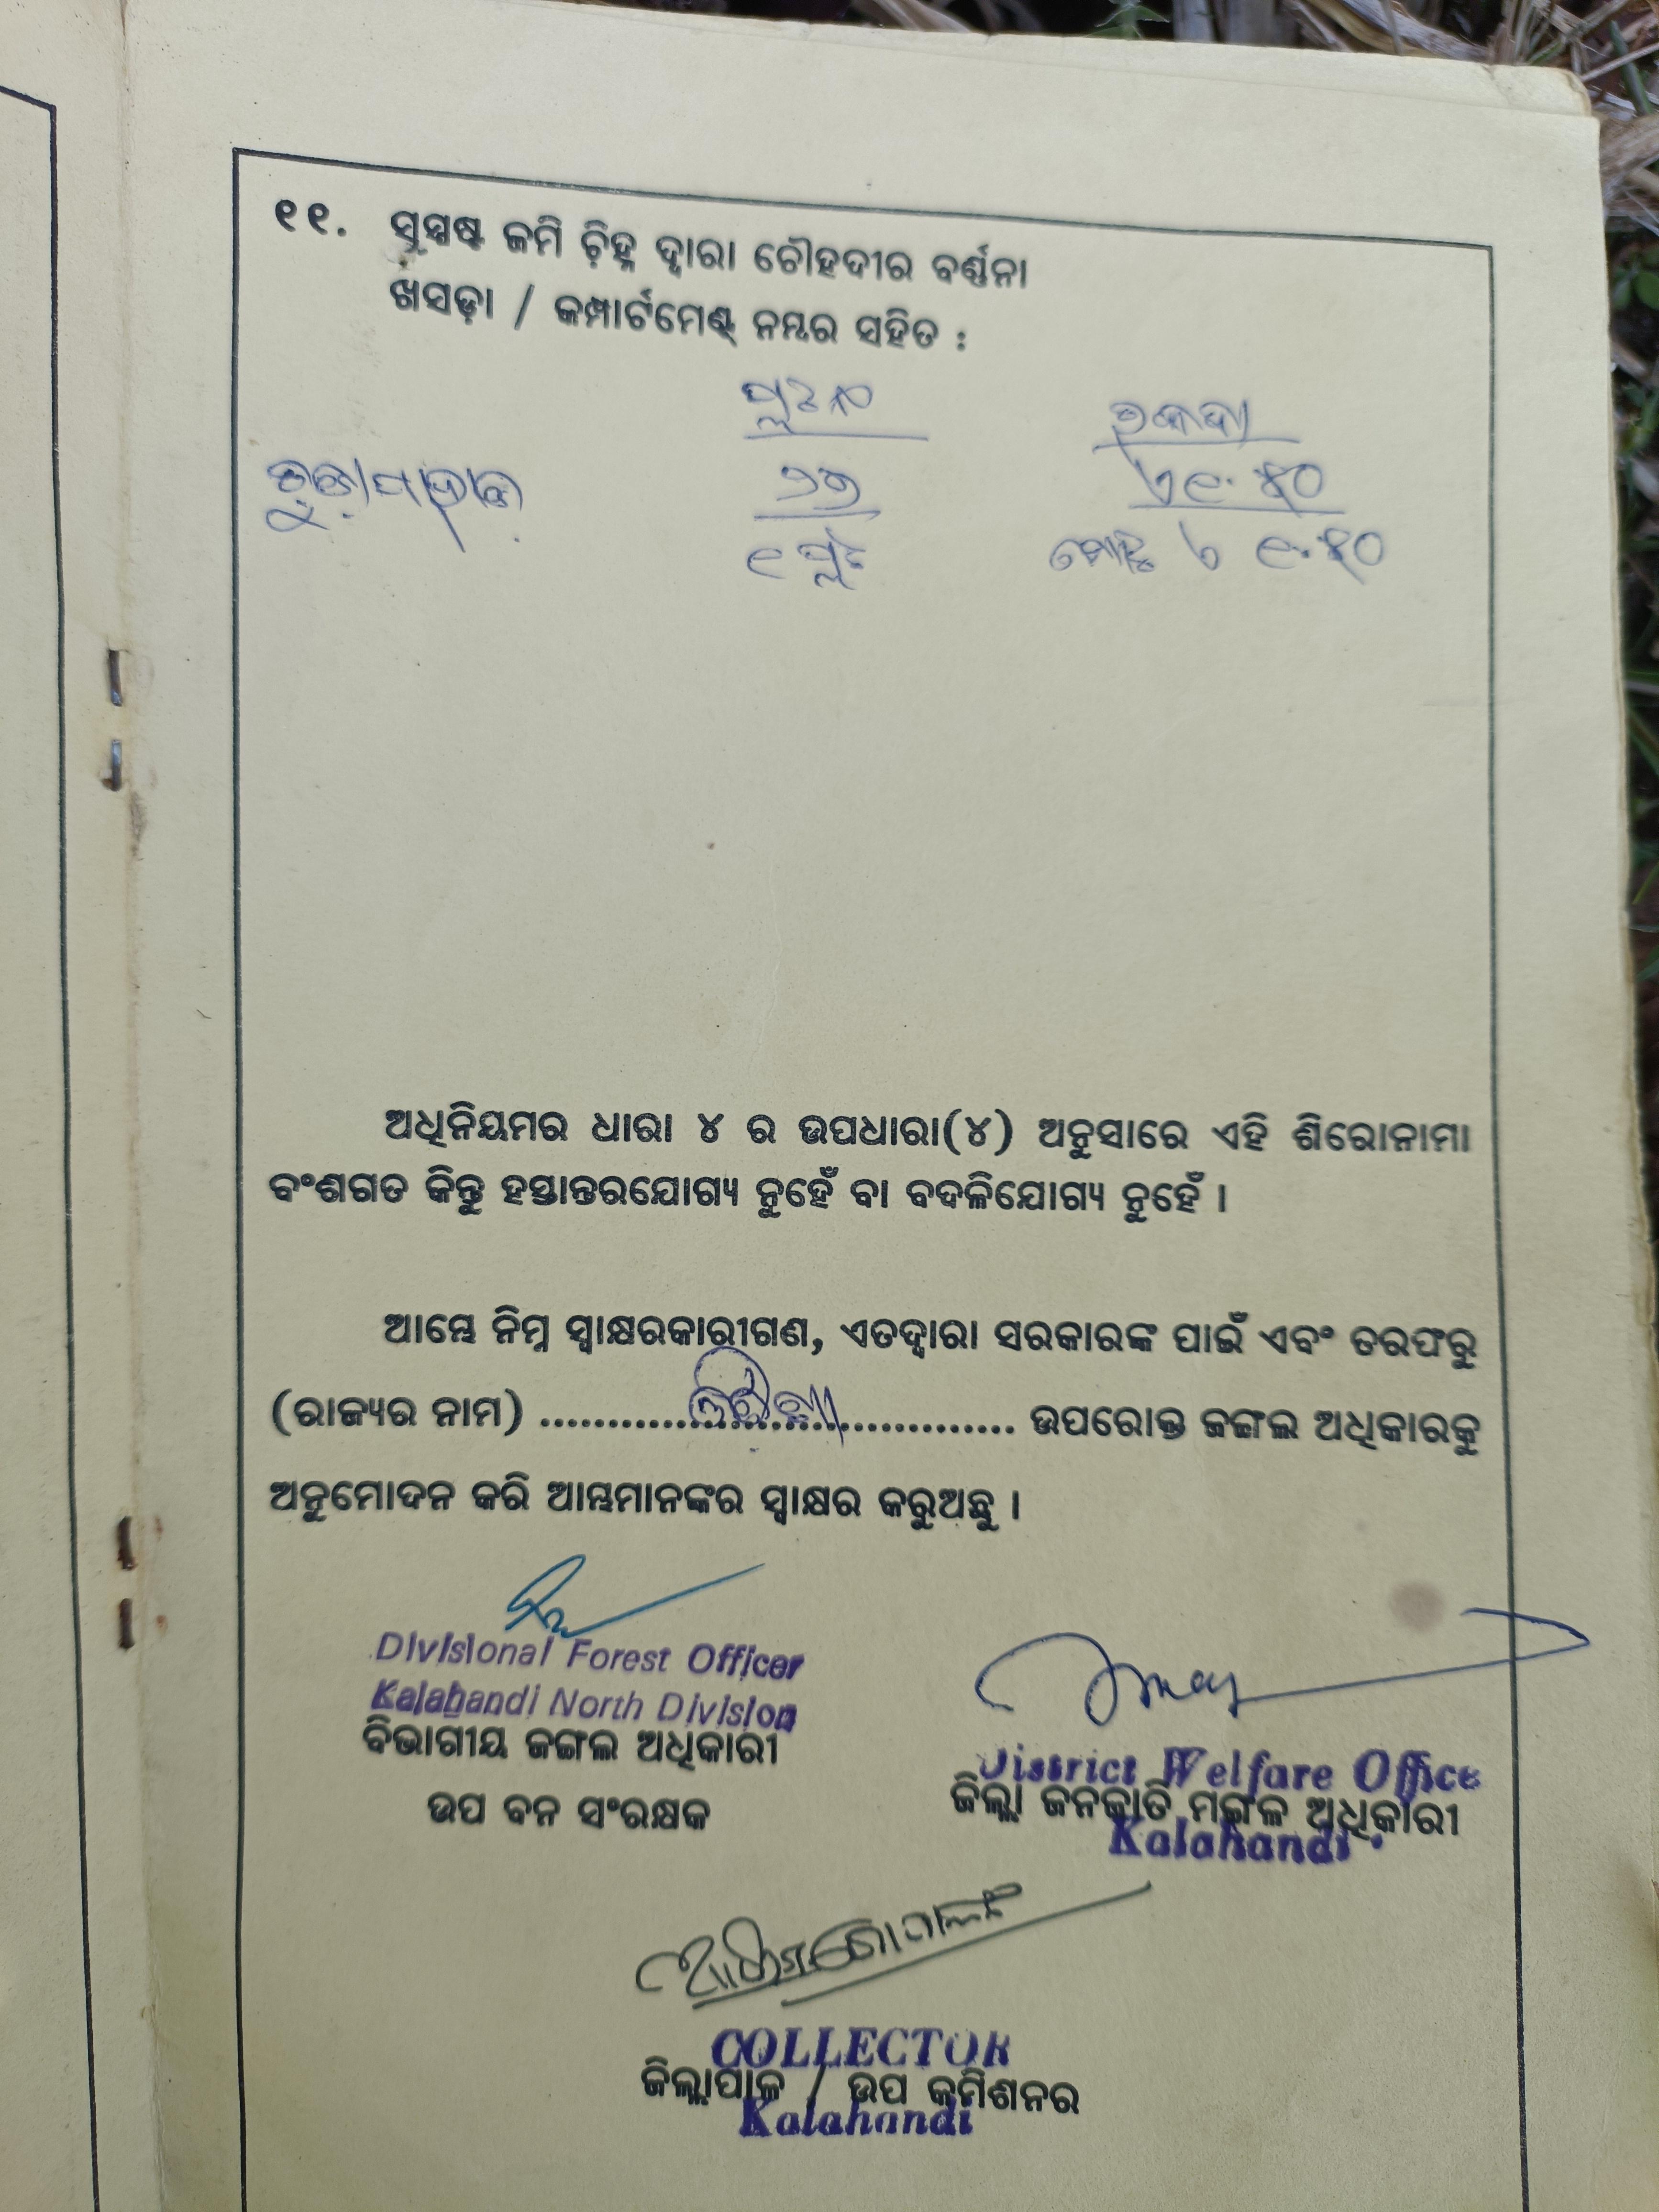 ୧୧. ସୁସ୍ପଷ୍ଟ ଜମି ଚିହ୍ନ ଦ୍ୱାରା ଚୌହଦୀର ବର୍ଣ୍ଣନା
ଖସଡ଼ା / କମ୍ପାର୍ଟମେଣ୍ଟ୍ ନମ୍ବର ସହିତ :
ଅଧିନିୟମର ଧାରା ୪ ର ଉପଧାରା(୪) ଅନୁସାରେ ଏହି ଶିରୋନାମା
ବଂଶଗତ କିନ୍ତୁ ହସ୍ତାନ୍ତରଯୋଗ୍ୟ ନୁହେଁ ବା ବଦଳିଯୋଗ୍ୟ ନୁହେଁ ।
ଆମ୍ଭେ ନିମ୍ନ ସ୍ୱାକ୍ଷରକାରୀଗଣ, ଏତଦ୍ୱାରା ସରକାରଙ୍କ ପାଇଁ ଏବଂ ତରଫରୁ
(ରାଜ୍ୟର ନାମ) ଓଡ଼ିଶା ଉପରୋକ୍ତ ଜଙ୍ଗଲ ଅଧିକାରକୁ
ଅନୁମୋଦନ କରି ଆମ୍ଭମାନଙ୍କର ସ୍ୱାକ୍ଷର କରୁଅଛୁ ।
Divisional Forest Officer
Kalahandi North Division
ବିଭାଗୀୟ ଜଙ୍ଗଲ ଅଧିକାରୀ
ଉପ ବନ ସଂରକ୍ଷକ
District Welfare Office
ଜିଲ୍ଲା ଜନଜାତି ମଙ୍ଗଳ ଅଧିକାରୀ
Kalahandi
COLLECTOR
ଜିଲ୍ଲାପାଳ / ଉପ କମିଶନର
Kalahandi